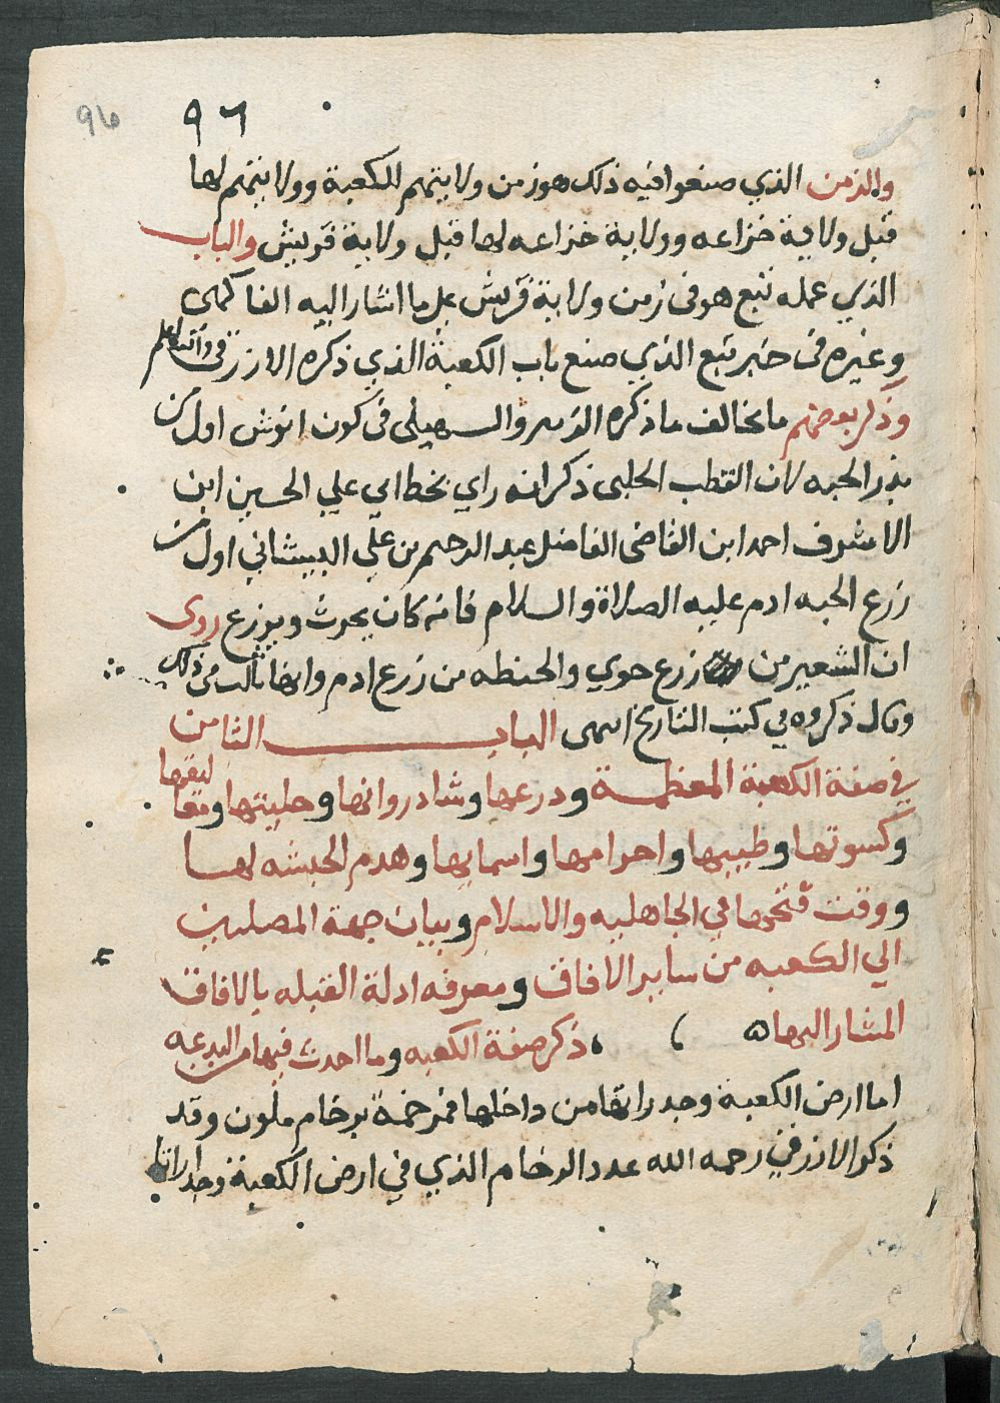 96 ٩٦
والزمن الذي صنعوا فيه ذلك هو زمن ولايتهم للكعبة وولايتهم لها
قبل ولاية خزاعه وولاية خزاعه لها قبل ولاية قريش والباب
الذي عمله تبع هو في زمن ولاية قريش على ما اشار اليه الفاكهي
وغيره في خبر تبع الذي صنع باب الكعبة الذي ذكره الازرقي والله اعلم
وذكر بعضهم ما يخالف ما ذكره الزبير والسهيلي في كون انوش اول من
بذر الحبه لان القطب الحلبي ذكر انه راي بخط ابي علي الحسين ابن
الاشرف احمد ابن القاضي الفاضل عبد الرحيم بن علي البيساني اول من
زرع الحبه ادم عليه الصلاة والسلام فانه كان يحرث ويزرع روى
ان الشعير من زرع حوي والحنطه من زرع ادم وانها نالت من ذلك
وقال ذكروه في كتب التاريخ انتهى الباب الثامن
في صفة الكعبة المعظمة ودرعها وشادروانها وحليتها ومعاليقها
وكسوتها وطيبها واحرامها واسمايها وهدم الحبشه لها
ووقت فتحها في الجاهليه والاسلام وبيان جهة المصلين
الي الكعبه من ساير الافاق ومعرفه ادلة القبله بالافاق
المشار اليها ه ، ، ذكر صفة الكعبه وما احدث فيها من البدعه
اما ارض الكعبة وجدراتها من داخلها فمرخمة برخام ملون وقد
ذكر الازرقي رحمه الله عدد الرخام الذي في ارض الكعبة وجداراتها